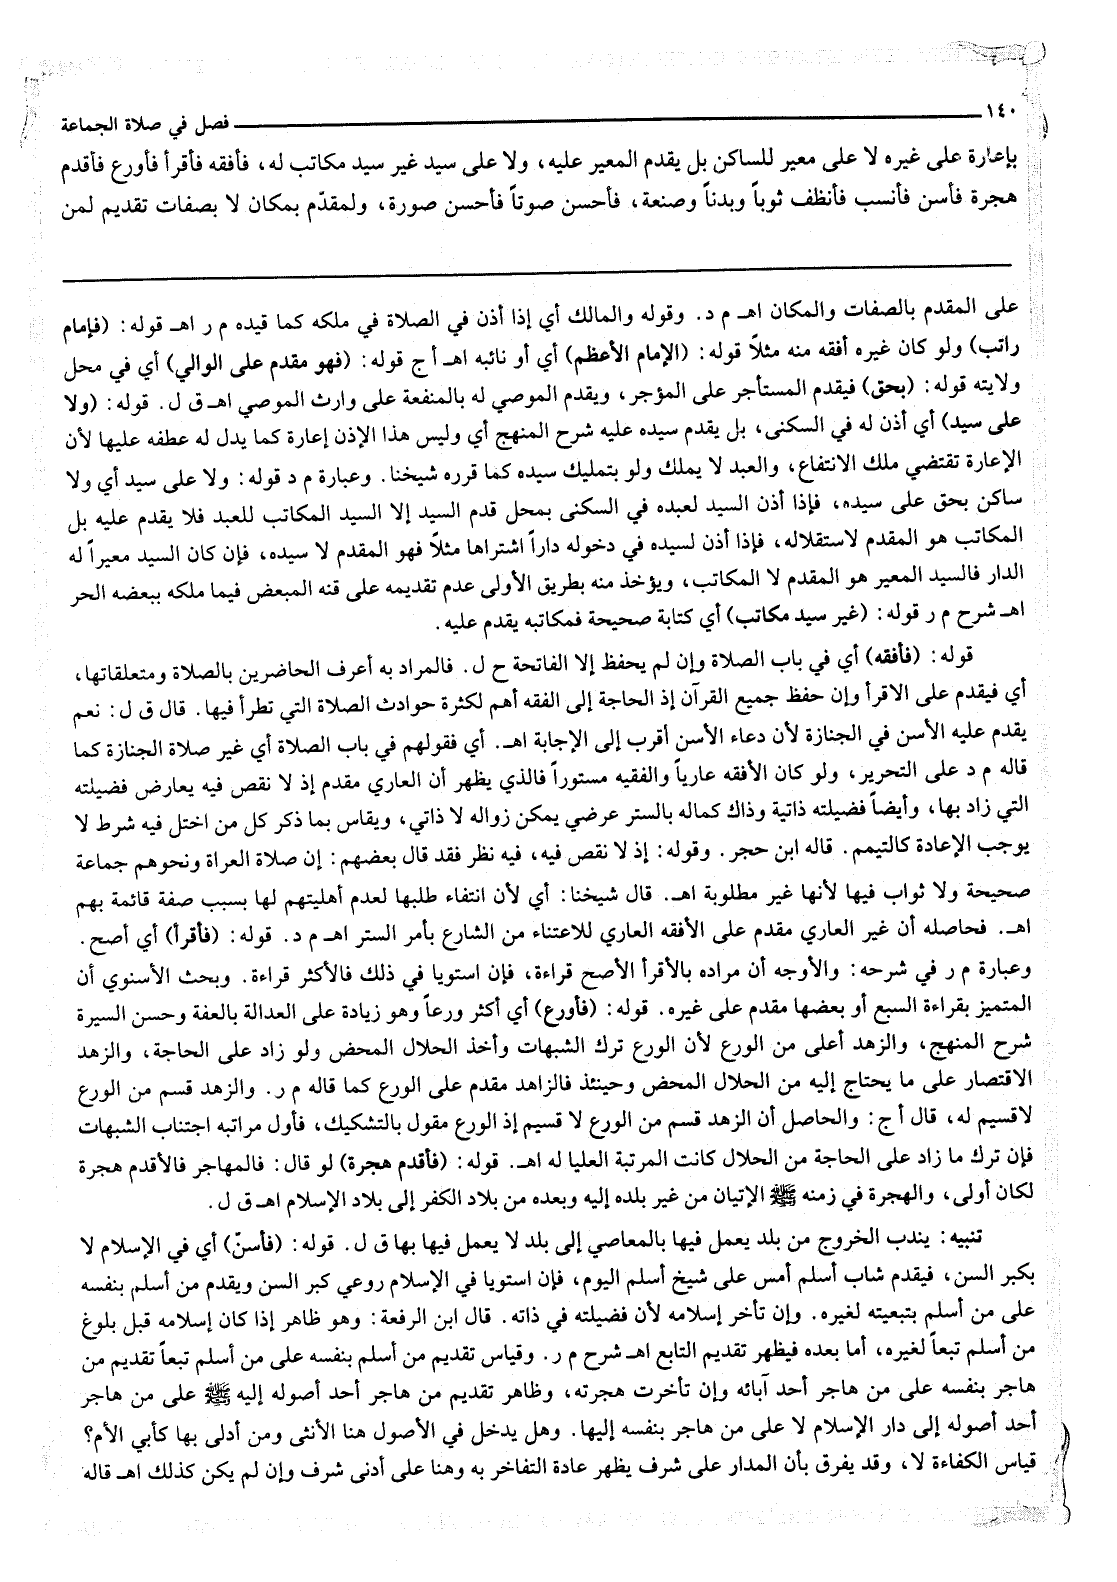 ١٤٠ فصل في صلاة الجماعة
بإعارة على غيره لا على معير للساكن بل يقدم المعير عليه، ولا على سيد غير سيد مكاتب له، فأفقه فأقرأ فأورع فأقدم
هجرة فأسن فأنسب فأنظف ثوباً وبدناً وصنعة، فأحسن صوتاً فأحسن صورة، ولمقدّم بمكان لا بصفات تقديم لمن
على المقدم بالصفات والمكان اهـ م د. وقوله والمالك أي إذا أذن في الصلاة في ملكه كما قيده م ر اهـ قوله: (فإمام
راتب) ولو كان غيره أفقه منه مثلاً قوله: (الإمام الأعظم) أي أو نائبه اهـ أ ج قوله: (فهو مقدم على الوالي) أي في محل
ولايته قوله: (بحق) فيقدم المستأجر على المؤجر، ويقدم الموصي له بالمنفعة على وارث الموصي اهـ ق ل. قوله: (ولا
على سيد) أي أذن له في السكنى، بل يقدم سيده عليه شرح المنهج أي وليس هذا الإذن إعارة كما يدل له عطفه عليها لأن
الإعارة تقتضي ملك الانتفاع، والعبد لا يملك ولو بتمليك سيده كما قرره شيخنا. وعبارة م د قوله: ولا على سيد أي ولا
ساكن بحق على سيده، فإذا أذن السيد لعبده في السكنى بمحل قدم السيد إلا السيد المكاتب للعبد فلا يقدم عليه بل
المكاتب هو المقدم لاستقلاله، فإذا أذن لسيده في دخوله داراً اشتراها مثلاً فهو المقدم لا سيده، فإن كان السيد معيراً له
الدار فالسيد المعير هو المقدم لا المكاتب، ويؤخذ منه بطريق الأولى عدم تقديمه على قنه المبعض فيما ملكه ببعضه الحر
اهـ شرح م ر قوله: (غير سيد مكاتب) أي كتابة صحيحة فمكاتبه يقدم عليه.
قوله: (فأفقه) أي في باب الصلاة وإن لم يحفظ إلا الفاتحة ح ل. فالمراد به أعرف الحاضرين بالصلاة ومتعلقاتها،
أي فيقدم على الاقرأ وإن حفظ جميع القرآن إذ الحاجة إلى الفقه أهم لكثرة حوادث الصلاة التي تطرأ فيها. قال ق ل: نعم
يقدم عليه الأسن في الجنازة لأن دعاء الأسن أقرب إلى الإجابة اهـ. أي فقولهم في باب الصلاة أي غير صلاة الجنازة كما
قاله م د على التحرير، ولو كان الأفقه عارياً والفقيه مستوراً فالذي يظهر أن العاري مقدم إذ لا نقص فيه يعارض فضيلته
التي زاد بها، وأيضاً فضيلته ذاتية وذاك كماله بالستر عرضي يمكن زواله لا ذاتي، ويقاس بما ذكر كل من اختل فيه شرط لا
يوجب الإعادة كالتيمم. قاله ابن حجر. وقوله: إذ لا نقص فيه، فيه نظر فقد قال بعضهم: إن صلاة العراة ونحوهم جماعة
صحيحة ولا ثواب فيها لأنها غير مطلوبة اهـ. قال شيخنا: أي لأن انتفاء طلبها لعدم أهليتهم لها بسبب صفة قائمة بهم
اهـ. فحاصله أن غير العاري مقدم على الأفقه العاري للاعتناء من الشارع بأمر الستر اهـ م د. قوله: (فأقرأ) أي أصح.
وعبارة م ر في شرحه: والأوجه أن مراده بالأقرأ الأصح قراءة، فإن استويا في ذلك فالأكثر قراءة. وبحث الأسنوي أن
المتميز بقراءة السبع أو بعضها مقدم على غيره. قوله: (فأورع) أي أكثر ورعاً وهو زيادة على العدالة بالعفة وحسن السيرة
شرح المنهج، والزهد أعلى من الورع لأن الورع ترك الشبهات وأخذ الحلال المحض ولو زاد على الحاجة، والزهد
الاقتصار على ما يحتاج إليه من الحلال المحض وحينئذ فالزاهد مقدم على الورع كما قاله م ر. والزهد قسم من الورع
لاقسيم له، قال أ ج: والحاصل أن الزهد قسم من الورع لا قسيم إذ الورع مقول بالتشكيك، فأول مراتبه اجتناب الشبهات
فإن ترك ما زاد على الحاجة من الحلال كانت المرتبة العليا له اهـ. قوله: (فأقدم هجرة) لو قال: فالمهاجر فالأقدم هجرة
لكان أولى، والهجرة في زمنه ﷺ الإتيان من غير بلده إليه وبعده من بلاد الكفر إلى بلاد الإسلام اهـ ق ل.
تنبيه: يندب الخروج من بلد يعمل فيها بالمعاصي إلى بلد لا يعمل فيها بها ق ل. قوله: (فأسنّ) أي في الإسلام لا
بكبر السن، فيقدم شاب أسلم أمس على شيخ أسلم اليوم، فإن استويا في الإسلام روعي كبر السن ويقدم من أسلم بنفسه
على من أسلم بتبعيته لغيره. وإن تأخر إسلامه لأن فضيلته في ذاته. قال ابن الرفعة: وهو ظاهر إذا كان إسلامه قبل بلوغ
من أسلم تبعاً لغيره، أما بعده فيظهر تقديم التابع اهـ شرح م ر. وقياس تقديم من أسلم بنفسه على من أسلم تبعاً تقديم من
هاجر بنفسه على من هاجر أحد آبائه وإن تأخرت هجرته، وظاهر تقديم من هاجر أحد أصوله إليه ﷺ على من هاجر
أحد أصوله إلى دار الإسلام لا على من هاجر بنفسه إليها. وهل يدخل في الأصول هنا الأنثى ومن أدلى بها كأبي الأم؟
قياس الكفاءة لا، وقد يفرق بأن المدار على شرف يظهر عادة التفاخر به وهنا على أدنى شرف وإن لم يكن كذلك اهـ قاله